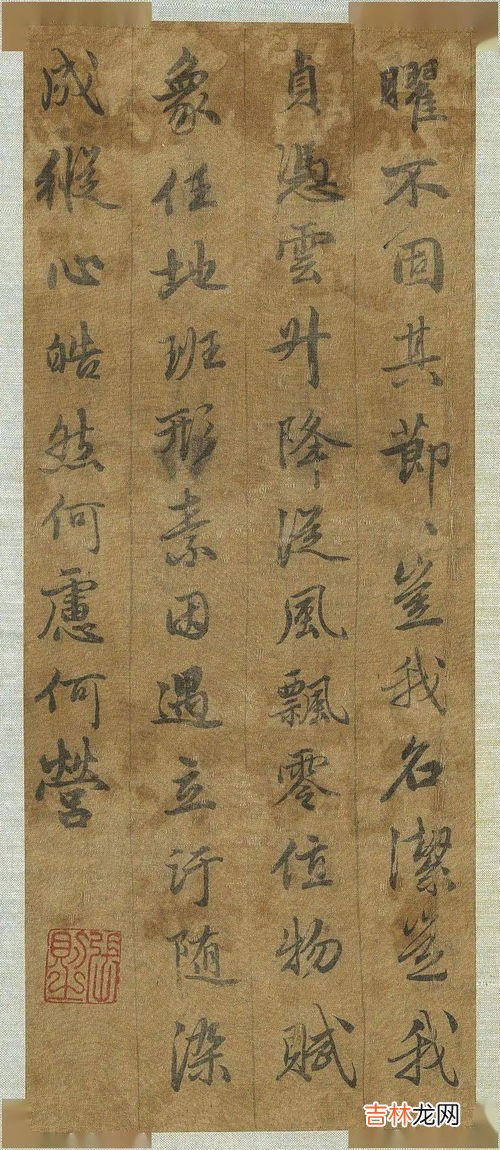 曜不固其節、豈我名潔豈我
貞憑雲升降從風飄零值物賦
象任地班形素因遇立汙随染
成縱心皓然何慮何營
張則之
吉林龙网